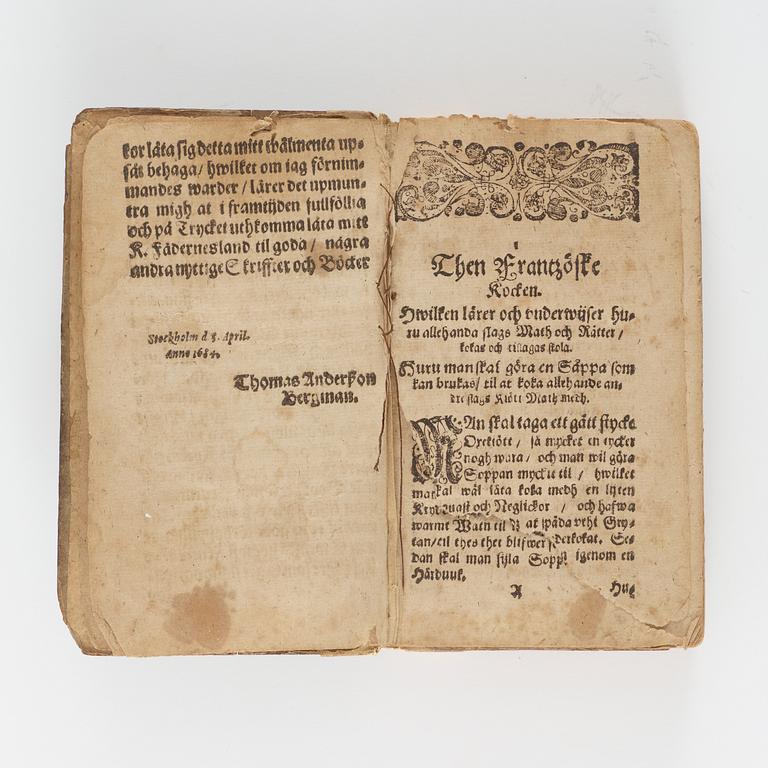 kor låta sig detta mitt wälmenta up-
såt behaga / hwilket om iag förnim-
mandes warder / lärer det upmun-
tra migh at i framtijden fullföllia
och på Trycket uthkomma låta mitt
K. Fädernesland til goda / några
andra nyttige Skriffter och Böcker
Stockholm d 8. April.
Anno 1684.
Thomas Andersson
Bergman.
Then Frantzöske
Kocken.
Hwilken lärer och vnderwijser hu-
ru allehanda slags Math och Rätter /
kokas och tillagas skola.
Huru man skal göra en Såppa som
kan brukas / til at koka allehande an-
dre slags Kiött Math medh.
MAn skal taga ett gått stycke
Oxekiött / så mycket en tycker
nogh wara / och man wil göra
Soppan myckit til / hwilket
man skal wäl låta koka medh en lijten
Krydquast och Neglickor / och hafwa
warmt Watn til at späda vthi Gry-
tan / til thes thet blifwer kokat. Se-
dan skal man sijla Soppa igenom en
Hårduuk.
A Hu-